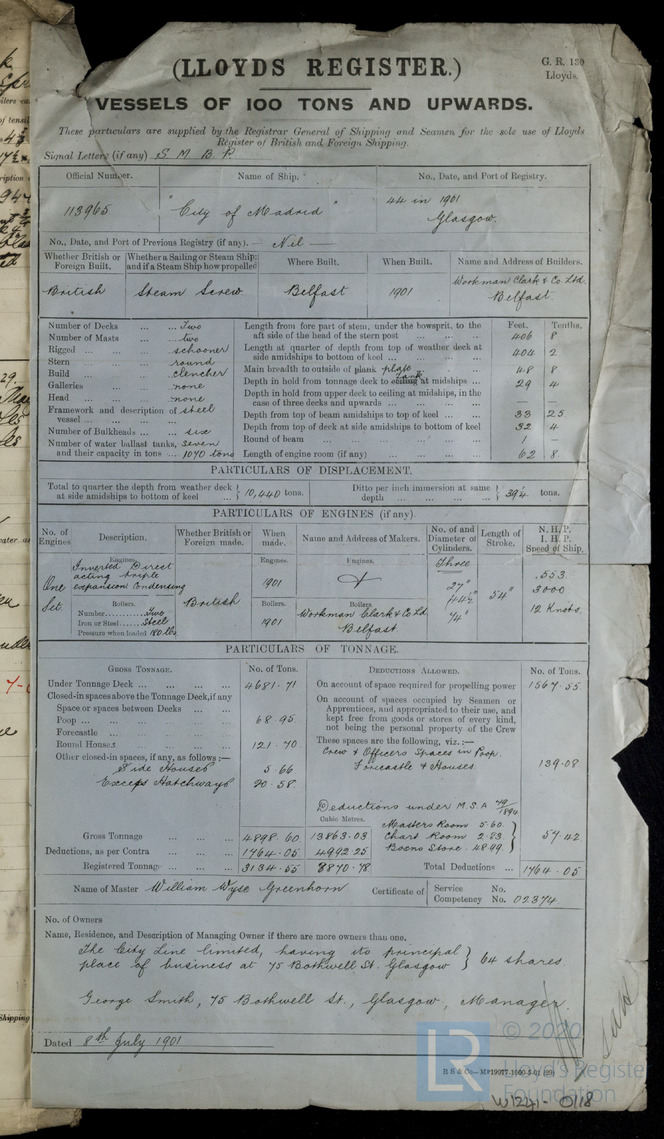 (LLOYDS REGISTER.)
G. R. 130
Lloyds.
VESSELS OF 100 TONS AND UPWARDS.
These particulars are supplied by the Registrar General of Shipping and Seamen for the sole use of Lloyds
Register of British and Foreign Shipping.
Signal Letters (if any) S M B P.
Official Number. Name of Ship. No., Date, and Port of Registry.
113965 "City of Madrid" 44 in 1901
Glasgow.
No., Date, and Port of Previous Registry (if any).— Nil —
Whether British or Foreign Built. Whether a Sailing or Steam Ship; and if a Steam Ship how propelled Where Built. When Built. Name and Address of Builders.
British Steam Screw Belfast 1901 Workman Clark & Co Ltd.
Belfast.
Feet. Tenths.
Number of Decks ... ... Two
Number of Masts ... ... two
Rigged ... ... ... schooner
Stern ... ... ... round
Build ... ... ... clencher
Galleries ... ... none
Head ... ... ... none
Framework and description of vessel ... ... ... steel
Number of Bulkheads ... ... six
Number of water ballast tanks, seven
and their capacity in tons ... 1070 tons
Length from fore part of stem, under the bowsprit, to the aft side of the head of the stern post ... 406 8
Length at quarter of depth from top of weather deck at side amidships to bottom of keel ... 404 2
Main breadth to outside of plank plate ... 48 8
Depth in hold from tonnage deck to ceiling tank at midships ... 29 4
Depth in hold from upper deck to ceiling at midships, in the case of three decks and upwards ... — —
Depth from top of beam amidships to top of keel ... 33 25
Depth from top of deck at side amidships to bottom of keel 32 4
Round of beam ... 1 —
Length of engine room (if any) ... 62 8
PARTICULARS OF DISPLACEMENT.
Total to quarter the depth from weather deck at side amidships to bottom of keel ... } 10,440 tons. Ditto per inch immersion at same depth ... } 39¼ tons.
PARTICULARS OF ENGINES (if any).
No. of Engines Description. Whether British or Foreign made. When made. Name and Address of Makers. No. of and Diameter of Cylinders. Length of Stroke. N. H. P. I. H. P. Speed of Ship.
Engines. Engines. Engines. Three
Inverted Direct
acting triple
expansion Condensing
One
Set.
British
1901
27"
44½"
74"
54"
553
3000
12 Knots.
Boilers. Boilers. Boilers.
Number............Two
Iron or Steel........Steel
Pressure when loaded 180 lbs
1901
Workman Clark & Co Ld
Belfast.
PARTICULARS OF TONNAGE.
GROSS TONNAGE. No. of Tons. DEDUCTIONS ALLOWED. No. of Tons.
Under Tonnage Deck ... ... ... 4681.71
Closed-in spaces above the Tonnage Deck, if any
Space or spaces between Decks ...
Poop ... ... ... 68.95
Forecastle ... ...
Round Houses ... ... 121.70
Other closed-in spaces, if any, as follows:—
Side Houses 5.66
Excess Hatchways 20.58
On account of space required for propelling power 1567.55
On account of spaces occupied by Seamen or Apprentices, and appropriated to their use, and kept free from goods or stores of every kind, not being the personal property of the Crew
These spaces are the following, viz.:—
Crew & Officers Spaces in Poop,
Forecastle & Houses. 139.08
Deductions under M.S.A 79/1894
Cubic Metres.
Masters Room 5.60
Chart Room 2.83
Boens Store 48.99
} 57.42
Gross Tonnage ... ... 4898.60 13863.03
Deductions, as per Contra ... 1764.05 4992.25
Registered Tonnage ... 3134.55 8870.78 Total Deductions ... 1764.05
Name of Master William Wyse Greenhorn Certificate of Service No.
Competency No. 02374
No. of Owners
Name, Residence, and Description of Managing Owner if there are more owners than one.
The City Line limited, having its principal
place of business at 75 Bothwell St. Glasgow } 64 shares
George Smith, 75 Bothwell St., Glasgow, Manager.
Dated 8th July 1901
LR
© 2020
Lloyd's Register
Foundation
W1221-0118